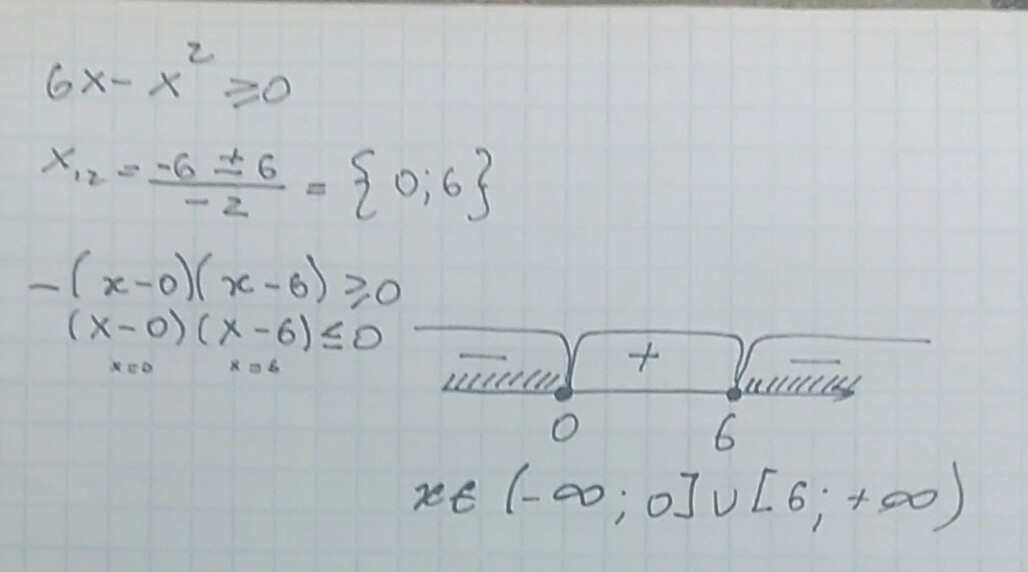 6x - x² ≥ 0
x₁₂ = (-6 ± 6) / (-2) = {0; 6}
-(x-0)(x-6) ≥ 0
(x-0)(x-6) ≤ 0
x=0 x=6
- + -
0 6
x ∈ (-∞; 0] ∪ [6; +∞)